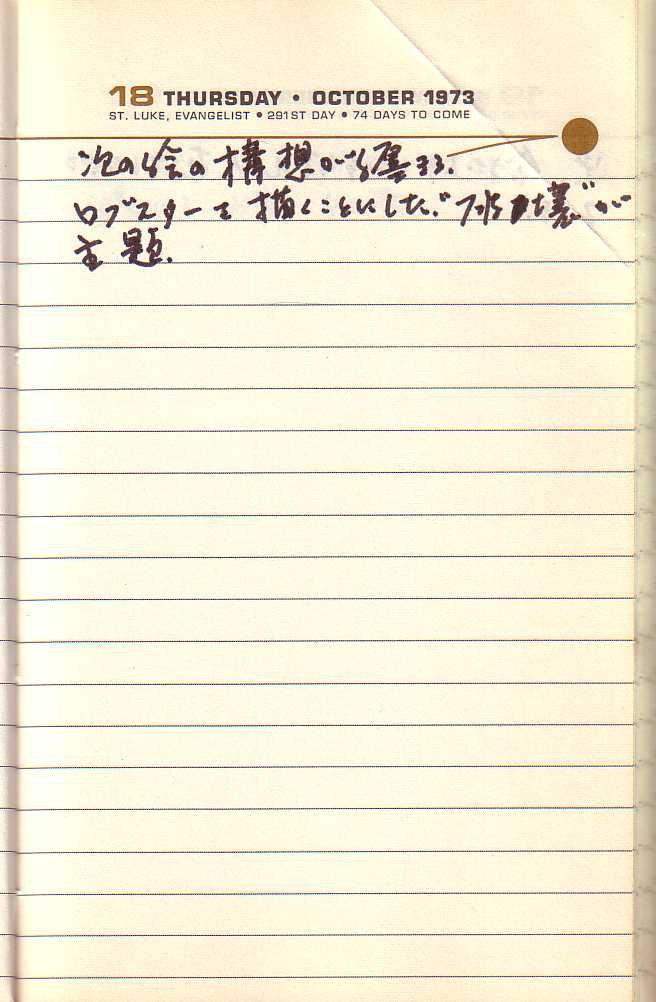 18 THURSDAY • OCTOBER 1973
ST. LUKE, EVANGELIST • 291ST DAY • 74 DAYS TO COME
次の絵の構想が纏まる.
ロブスターを描くことにした.“破壊”が
主題.